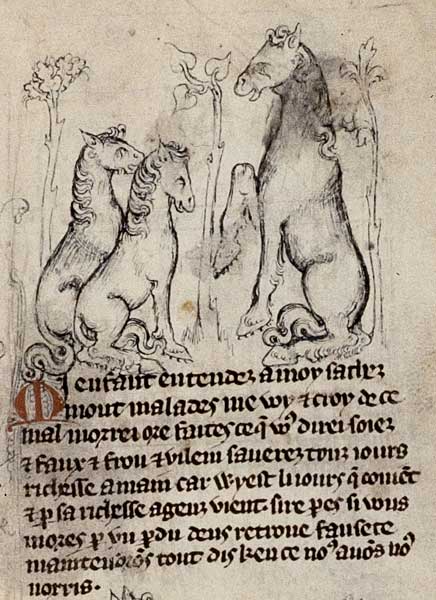 Mi enfant entendez a moy sachiez
mout malades me voy & croy de ce
mal morrei ore faites ce q̃ vo9 direi soiez
& faux & frou & vilein sauerez touz iours
richesse a mani car wy est li iours q̃ couient
& p̲ sa richesse a geuz vient. sire pes si vous
mores p̲ vn p̲du deus retroue fausete
maintenrõs tout dis ken ce no9 auõs vo9
norris.